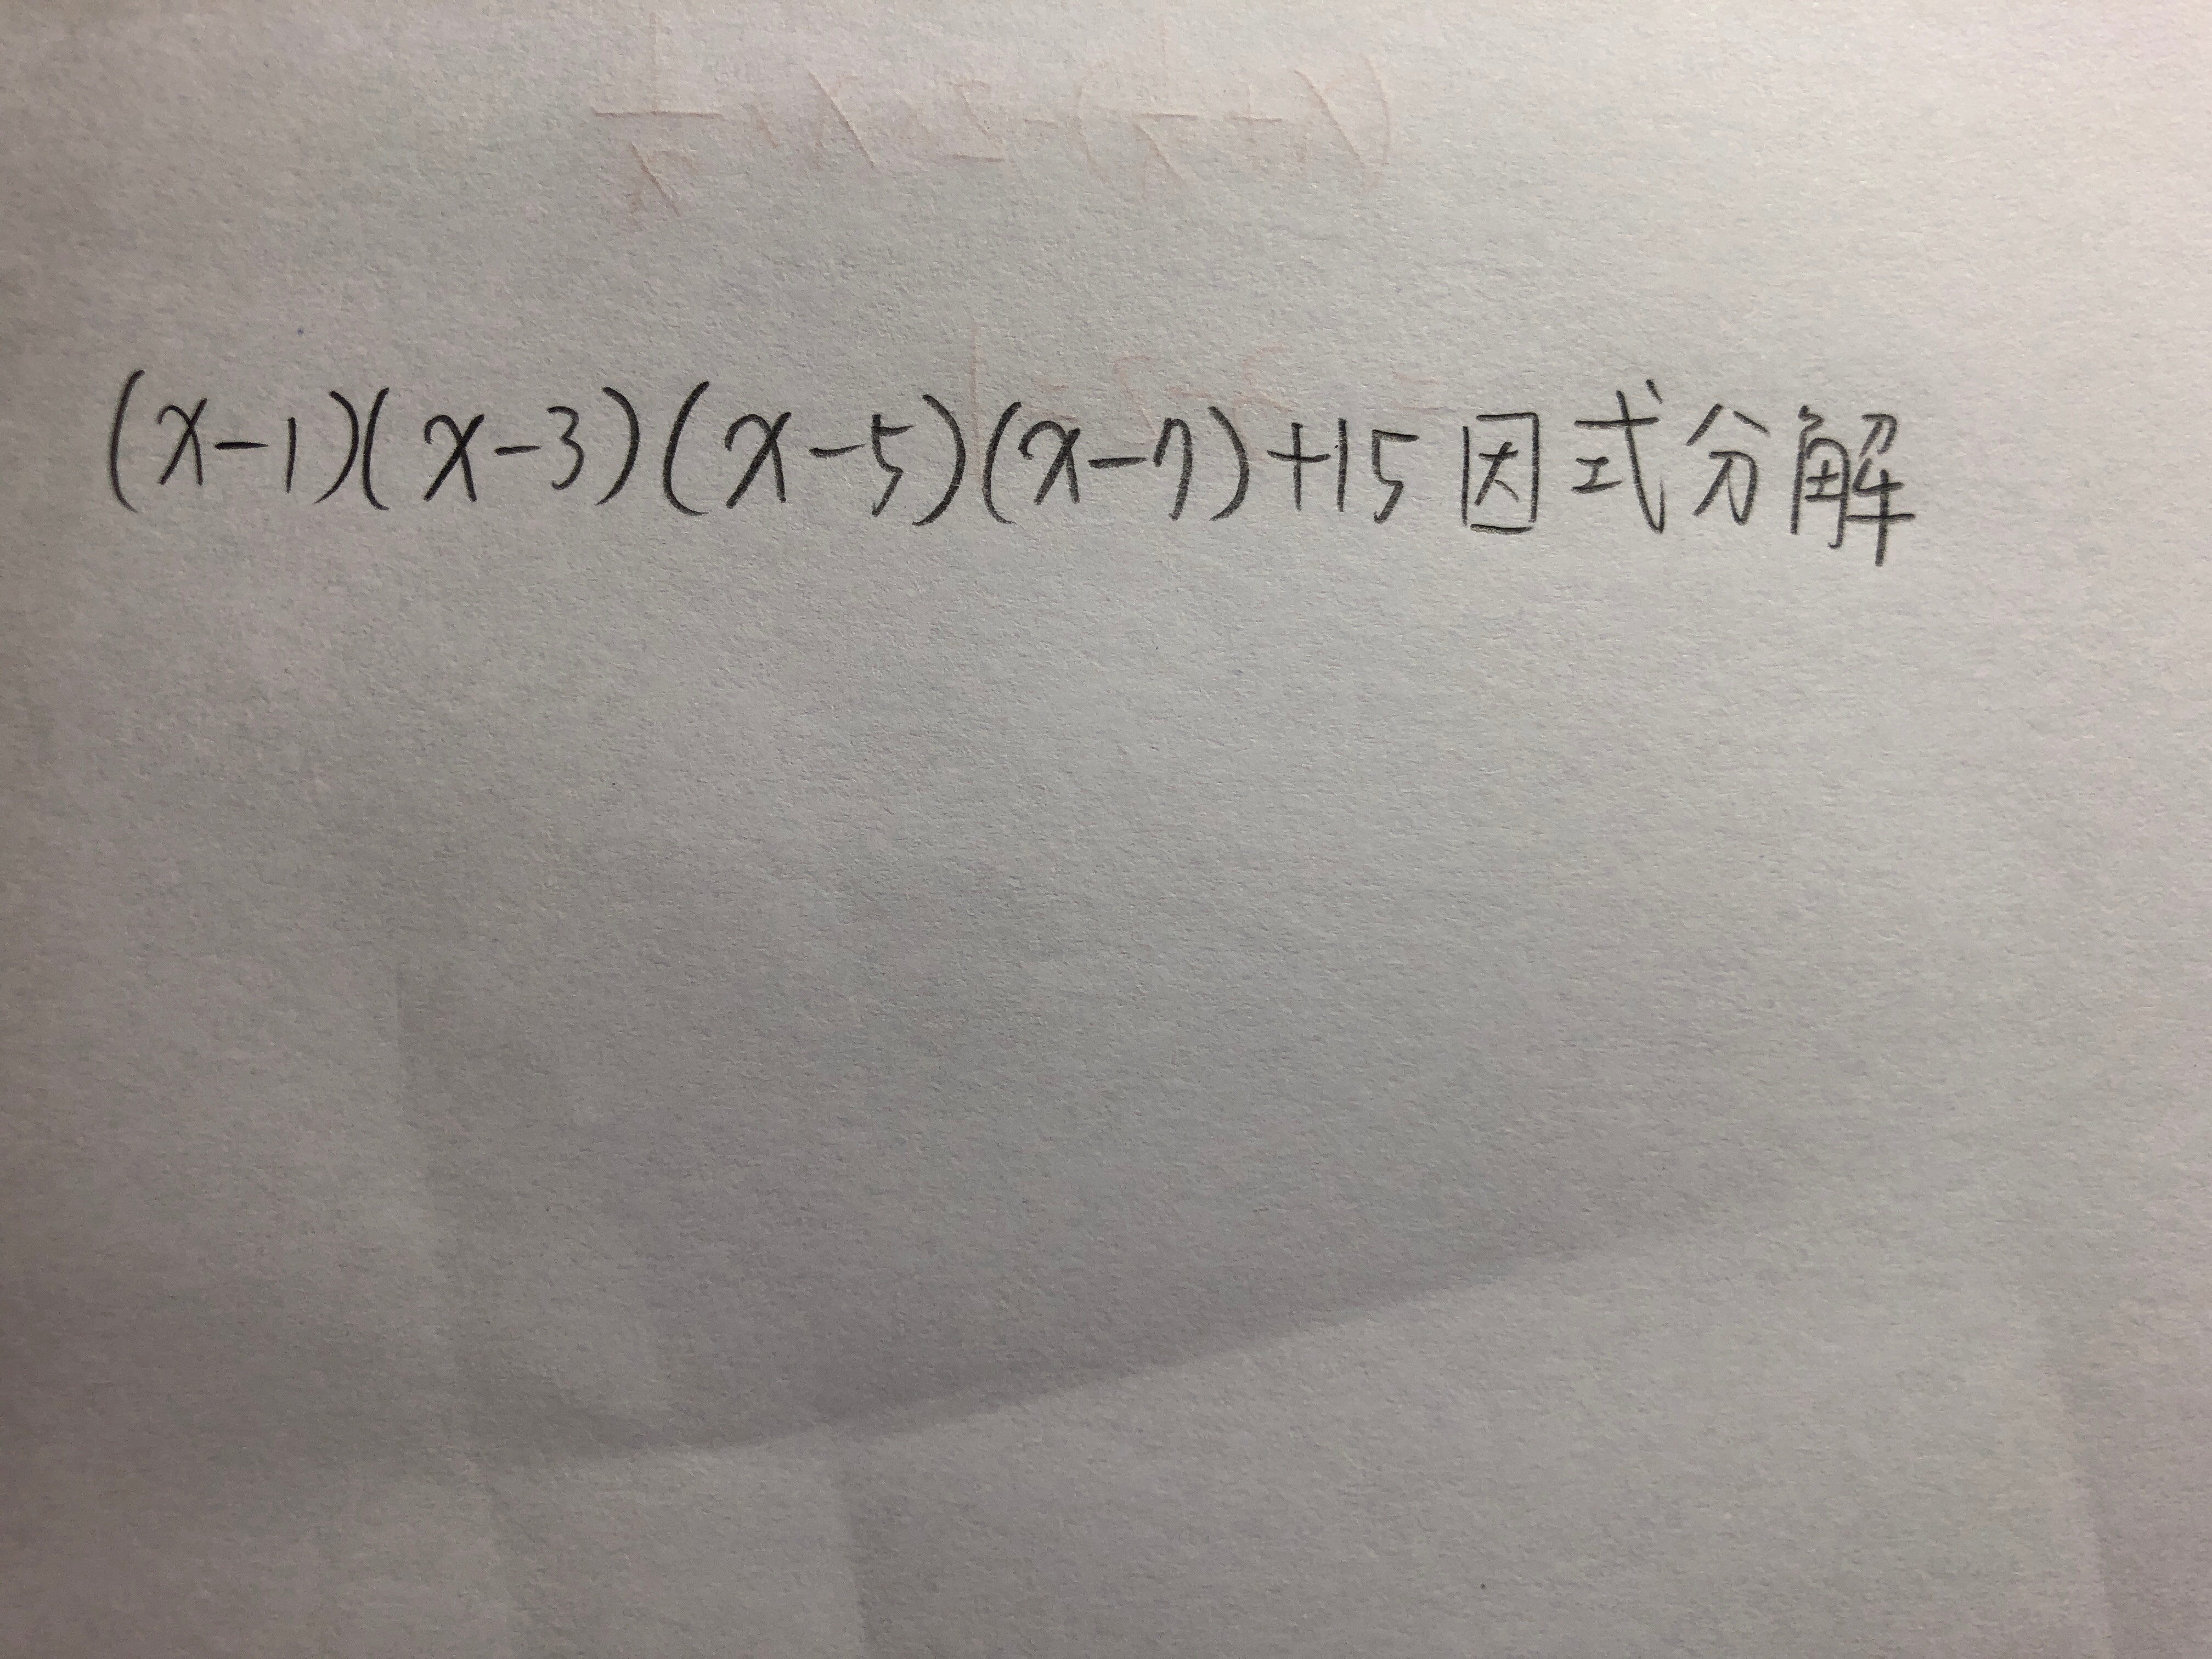 (x-1)(x-3)(x-5)(x-7)+15因式分解